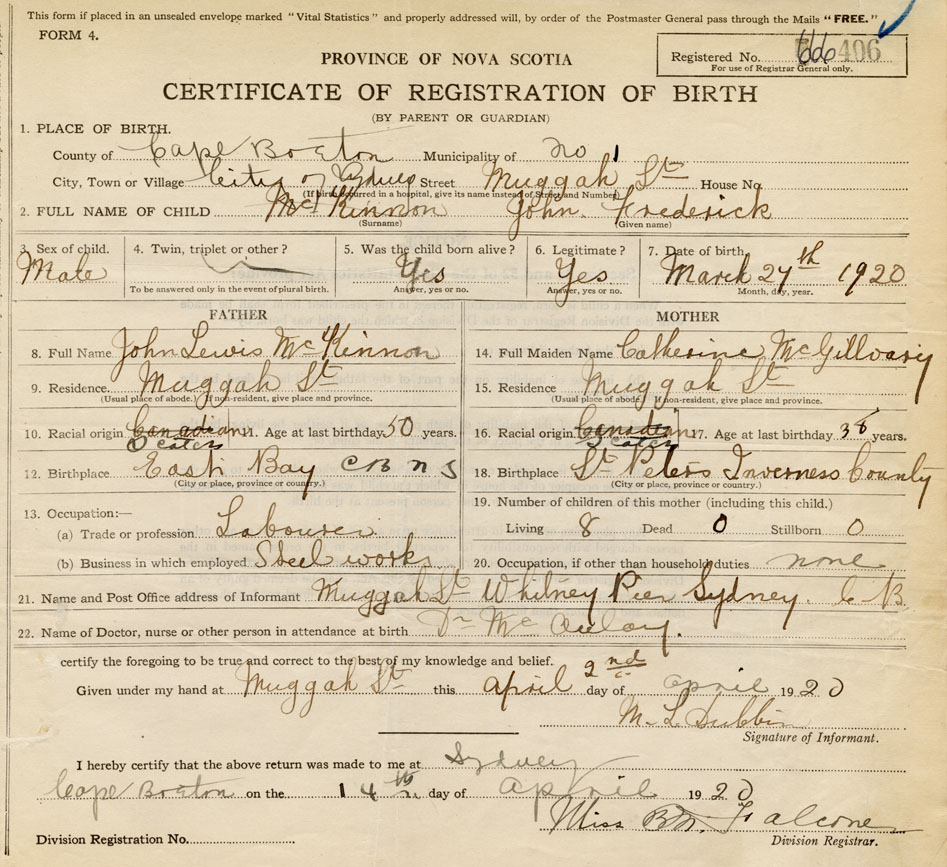 This form if placed in an unsealed envelope marked "Vital Statistics" and properly addressed will, by order of the Postmaster General pass through the Mails "FREE."
FORM 4.
Registered No. 406
For use of Registrar General only.
PROVINCE OF NOVA SCOTIA
CERTIFICATE OF REGISTRATION OF BIRTH
(BY PARENT OR GUARDIAN)
1. PLACE OF BIRTH.
County of Cape Breton Municipality of No 1
City, Town or Village City of Sydney Street Muggah St House No
(If birth occurred in a hospital, give its name instead of Street and Number)
2. FULL NAME OF CHILD McKinnon John Frederick
(Surname) (Given name)
3. Sex of child. 4. Twin, triplet or other? 5. Was the child born alive? 6. Legitimate? 7. Date of birth
Male Yes Yes March 27th 1920
To be answered only in the event of plural birth. Answer, yes or no. Answer, yes or no. Month, day, year.
FATHER MOTHER
8. Full Name John Lewis McKinnon 14. Full Maiden Name Catherine McGillvary
9. Residence Muggah St 15. Residence Muggah St
(Usual place of abode.) If non-resident, give place and province. (Usual place of abode.) If non-resident, give place and province.
10. Racial origin Canadian 11. Age at last birthday 50 years. 16. Racial origin Canadian 17. Age at last birthday 38 years.
Scotch Scotch
12. Birthplace East Bay C B N S 18. Birthplace St Peters Inverness County
(City or place, province or country.) (City or place, province or country.)
13. Occupation:— 19. Number of children of this mother (including this child.)
(a) Trade or profession Labourer Living 8 Dead 0 Stillborn 0
(b) Business in which employed Steel work 20. Occupation, if other than household duties none
21. Name and Post Office address of Informant Muggah St Whitney Pier Sydney. C B.
22. Name of Doctor, nurse or other person in attendance at birth Dr McAulay.
certify the foregoing to be true and correct to the best of my knowledge and belief.
Given under my hand at Muggah St this April 2nd day of April 1920
M. L.
Signature of Informant.
I hereby certify that the above return was made to me at Sydney
Cape Breton on the 14th day of April 1920
Miss Falcone
Division Registration No. Division Registrar.